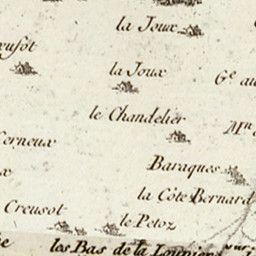 la Joux
la Joux
Gᵉ au
le Chandelier
Mⁱⁿ
Cerneux
Baraques
x
la Côte Bernard
Creusot
le Petoz
les Bas de la